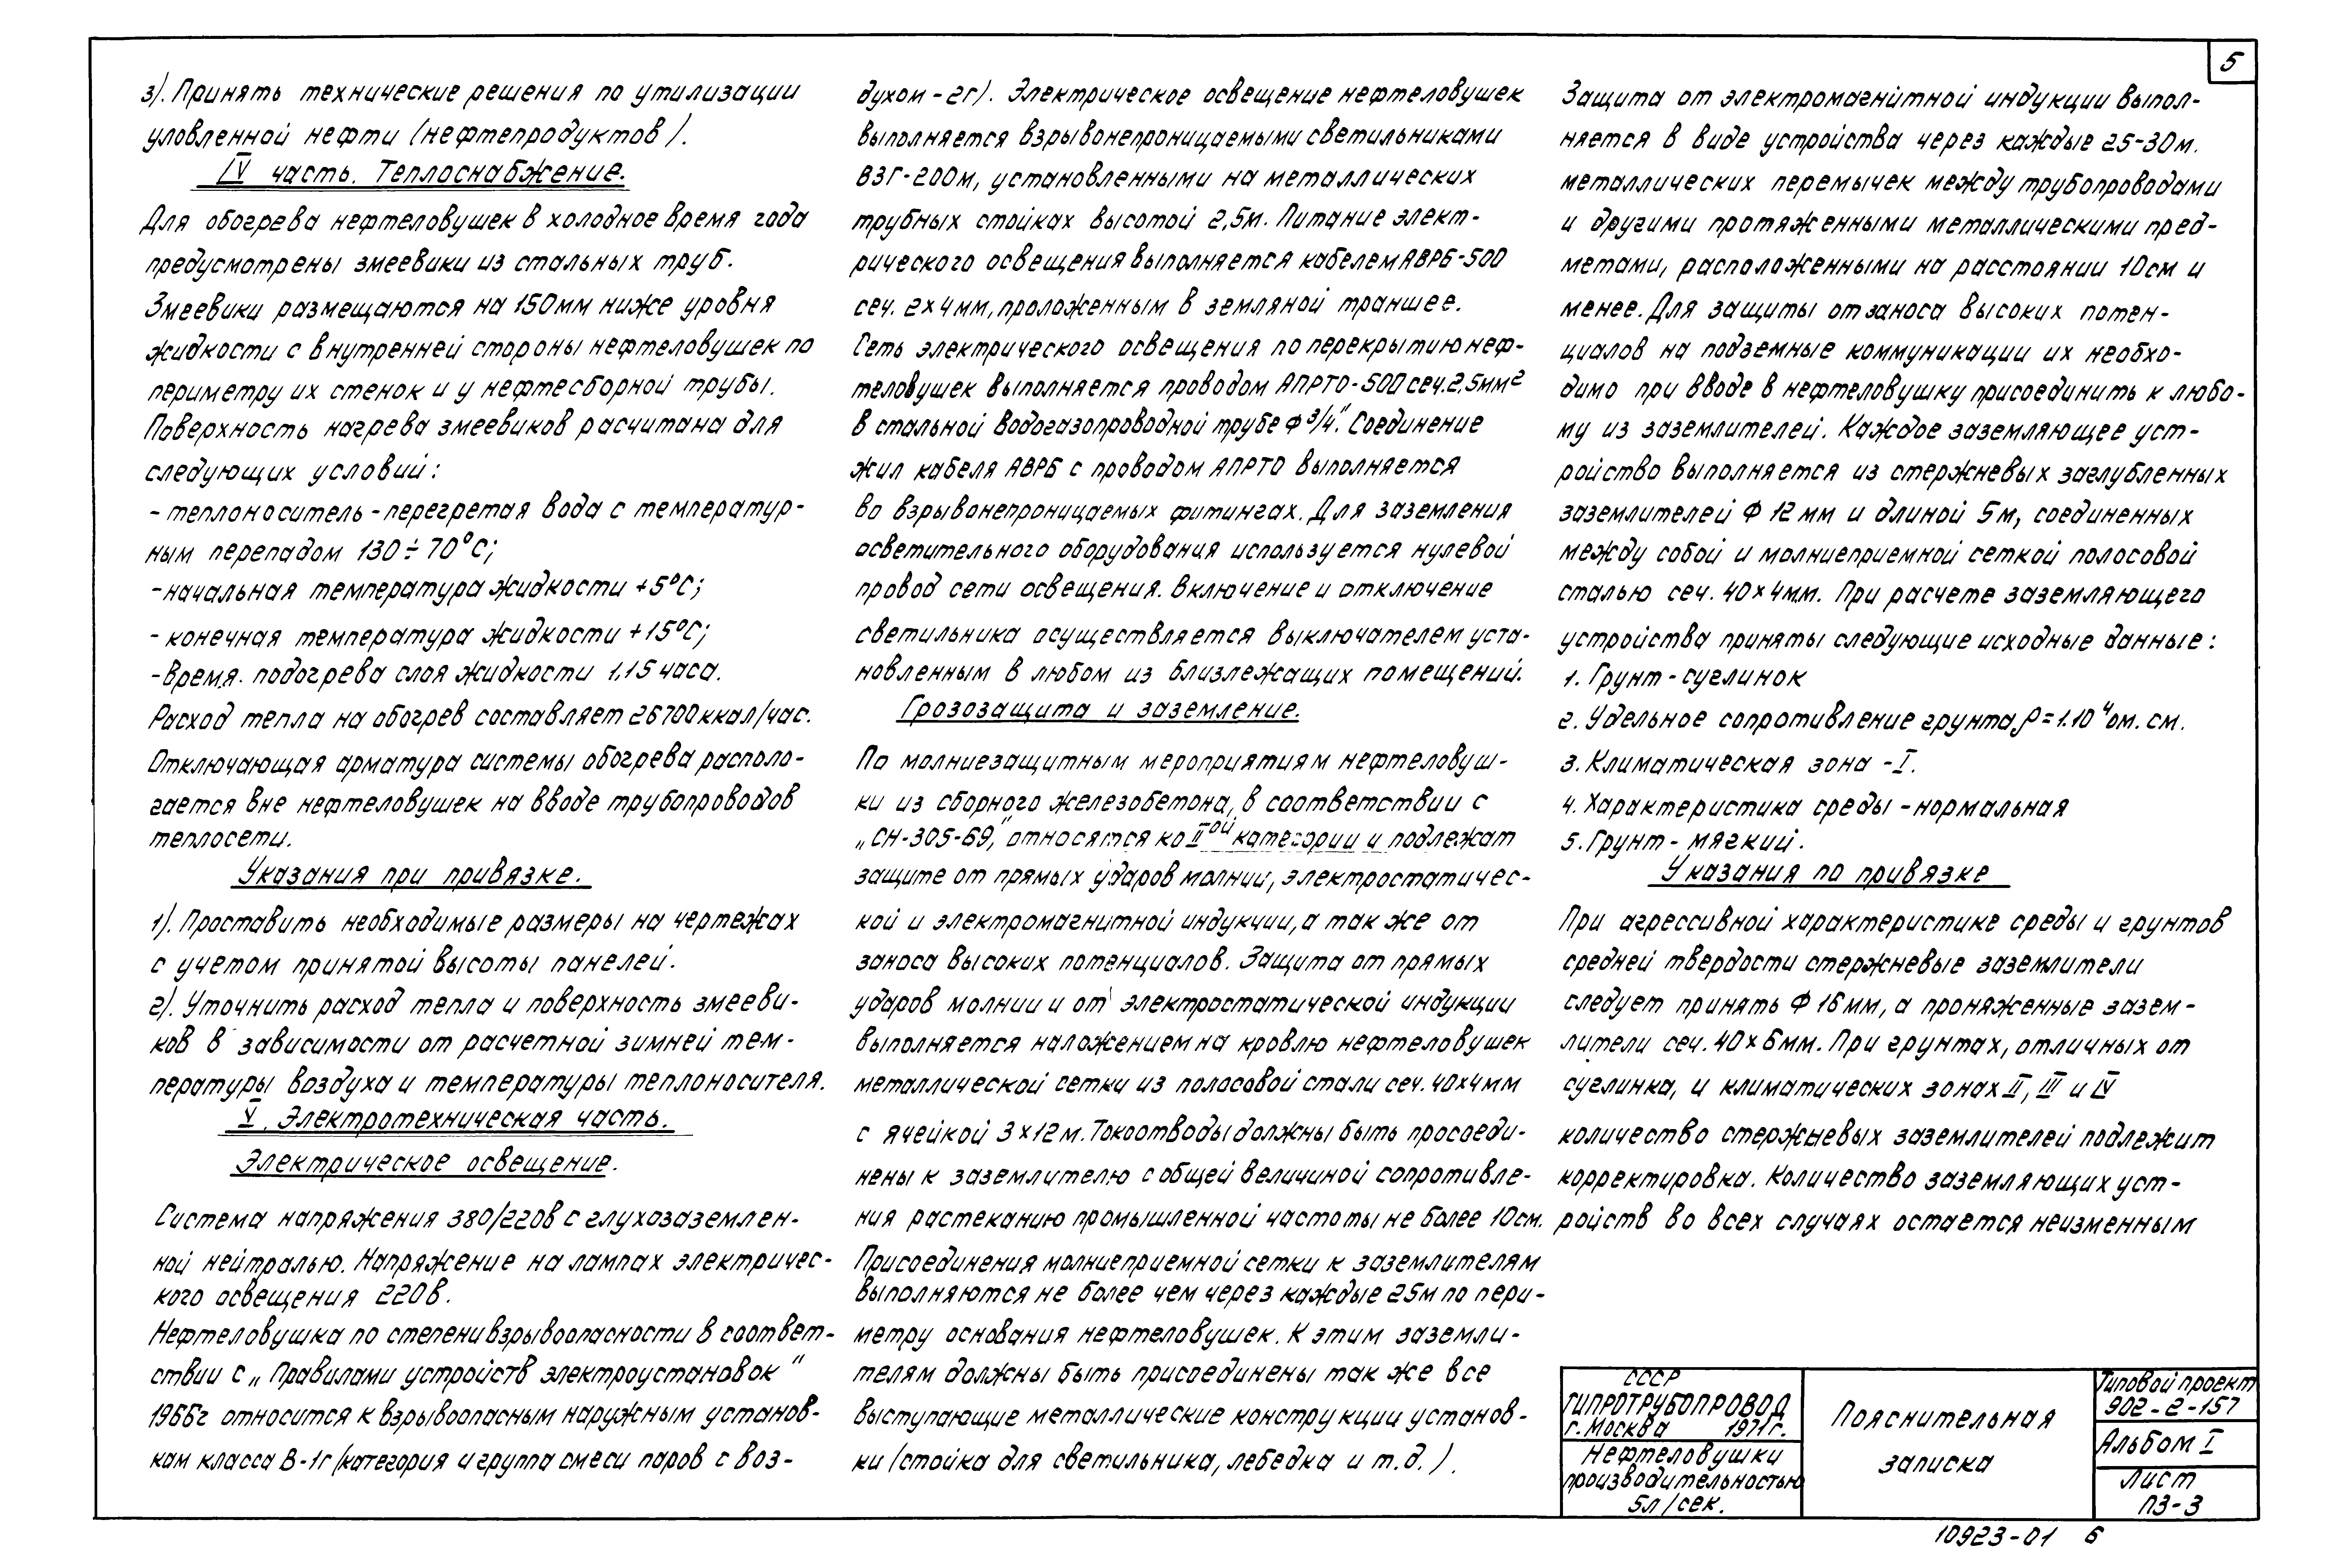 5
3). Принять технические решения по утилизации
уловленной нефти (нефтепродуктов).
IV часть. Теплоснабжение.
Для обогрева нефтеловушек в холодное время года
предусмотрены змеевики из стальных труб.
Змеевики размещаются на 150мм ниже уровня
жидкости с внутренней стороны нефтеловушек по
периметру их стенок и у нефтесборной трубы.
Поверхность нагрева змеевиков расчитана для
следующих условий:
- теплоноситель - перегретая вода с температур-
ным перепадом 130÷70°С;
- начальная температура жидкости +5°С;
- конечная температура жидкости +15°С;
- время подогрева слоя жидкости 1,15 часа.
Расход тепла на обогрев составляет 26700 ккал/час.
Отключающая арматура системы обогрева располо-
гается вне нефтеловушек на вводе трубопроводов
теплосети.
Указания при привязке.
1). Проставить необходимые размеры на чертежах
с учетом принятой высоты панелей.
2). Уточнить расход тепла и поверхность змееви-
ков в зависимости от расчетной зимней тем-
пературы воздуха и температуры теплоносителя.
V. Электротехническая часть.
Электрическое освещение.
Система напряжения 380/220в с глухозаземлен-
ной нейтралью. Напряжение на лампах электричес-
кого освещения 220в.
Нефтеловушка по степени взрывоопасности в соответ-
ствии с „Правилами устройств электроустановок"
1966г относится к взрывоопасным наружным установ-
кам класса В-1г (категория и группа смеси паров с воз-
духом - 2г). Электрическое освещение нефтеловушек
выполняется взрывонепроницаемыми светильниками
ВЗГ-200м, установленными на металлических
трубных стойках высотой 2,5м. Питание элект-
рического освещения выполняется кабелем АВРБ-500
сеч. 2×4мм, проложенным в земляной траншее.
Сеть электрического освещения по перекрытию неф-
теловушек выполняется проводом АПРТО-500 сеч. 2,5мм²
в стальной водогазопроводной трубе Ф 3/4". Соединение
жил кабеля АВРБ с проводом АПРТО выполняется
во взрывонепроницаемых фитингах. Для заземления
осветительного оборудования используется нулевой
провод сети освещения. Включение и отключение
светильника осуществляется выключателем уста-
новленным в любом из близлежащих помещений.
Грозозащита и заземление.
По молниезащитным мероприятиям нефтеловуш-
ки из сборного железобетона, в соответствии с
„СН-305-69," относятся ко II ой категории и подлежат
защите от прямых ударов молнии, электростатичес-
кой и электромагнитной индукции, а так же от
заноса высоких потенциалов. Защита от прямых
ударов молнии и от электростатической индукции
выполняется наложением на кровлю нефтеловушек
металлической сетки из полосовой стали сеч. 40×4мм
с ячейкой 3×12м. Токоотводы должны быть просоеди-
нены к заземлителю с общей величиной сопротивле-
ния растеканию промышленной частоты не более 10см.
Присоединения молниеприемной сетки к заземлителям
выполняются не более чем через каждые 25м по пери-
метру основания нефтеловушек. К этим заземли-
телям должны быть присоединены так же все
выступающие металлические конструкции установ-
ки (стойка для светильника, лебедка и т.д.).
Защита от электромагнитной индукции выпол-
няется в виде устройства через каждые 25-30м.
металлических перемычек между трубопроводами
и другими протяженными металлическими пред-
метами, расположенными на расстоянии 10см и
менее. Для защиты от заноса высоких потен-
циалов на подземные коммуникации их необхо-
димо при вводе в нефтеловушку присоединить к любо-
му из заземлителей. Каждое заземляющее уст-
ройство выполняется из стержневых заглубленных
заземлителей Ф 12мм и длиной 5м, соединенных
между собой и молниеприемной сеткой полосовой
сталью сеч. 40×4мм. При расчете заземляющего
устройства приняты следующие исходные данные:
1. Грунт - суглинок
2. Удельное сопротивление грунта, ρ=1.10⁴ом.см.
3. Климатическая зона - I.
4. Характеристика среды - нормальная
5. Грунт - мягкий.
Указания по привязке
При агрессивной характеристике среды и грунтов
средней твердости стержневые заземлители
следует принять Ф 16мм, а проняженные зазем-
лители сеч. 40×6мм. При грунтах, отличных от
суглинка, и климатических зонах II, III и IV
количество стержневых заземлителей подлежит
корректировка. Количество заземляющих уст-
ройств во всех случаях остается неизменным
СССР
ГИПРОТРУБОПРОВОД
г. Москва 1971г.
Нефтеловушки
производительностью
5л/сек.
Пояснительная
записка
Типовой проект
902-2-157
Альбом I
Лист
ПЗ-3
10923-01 6